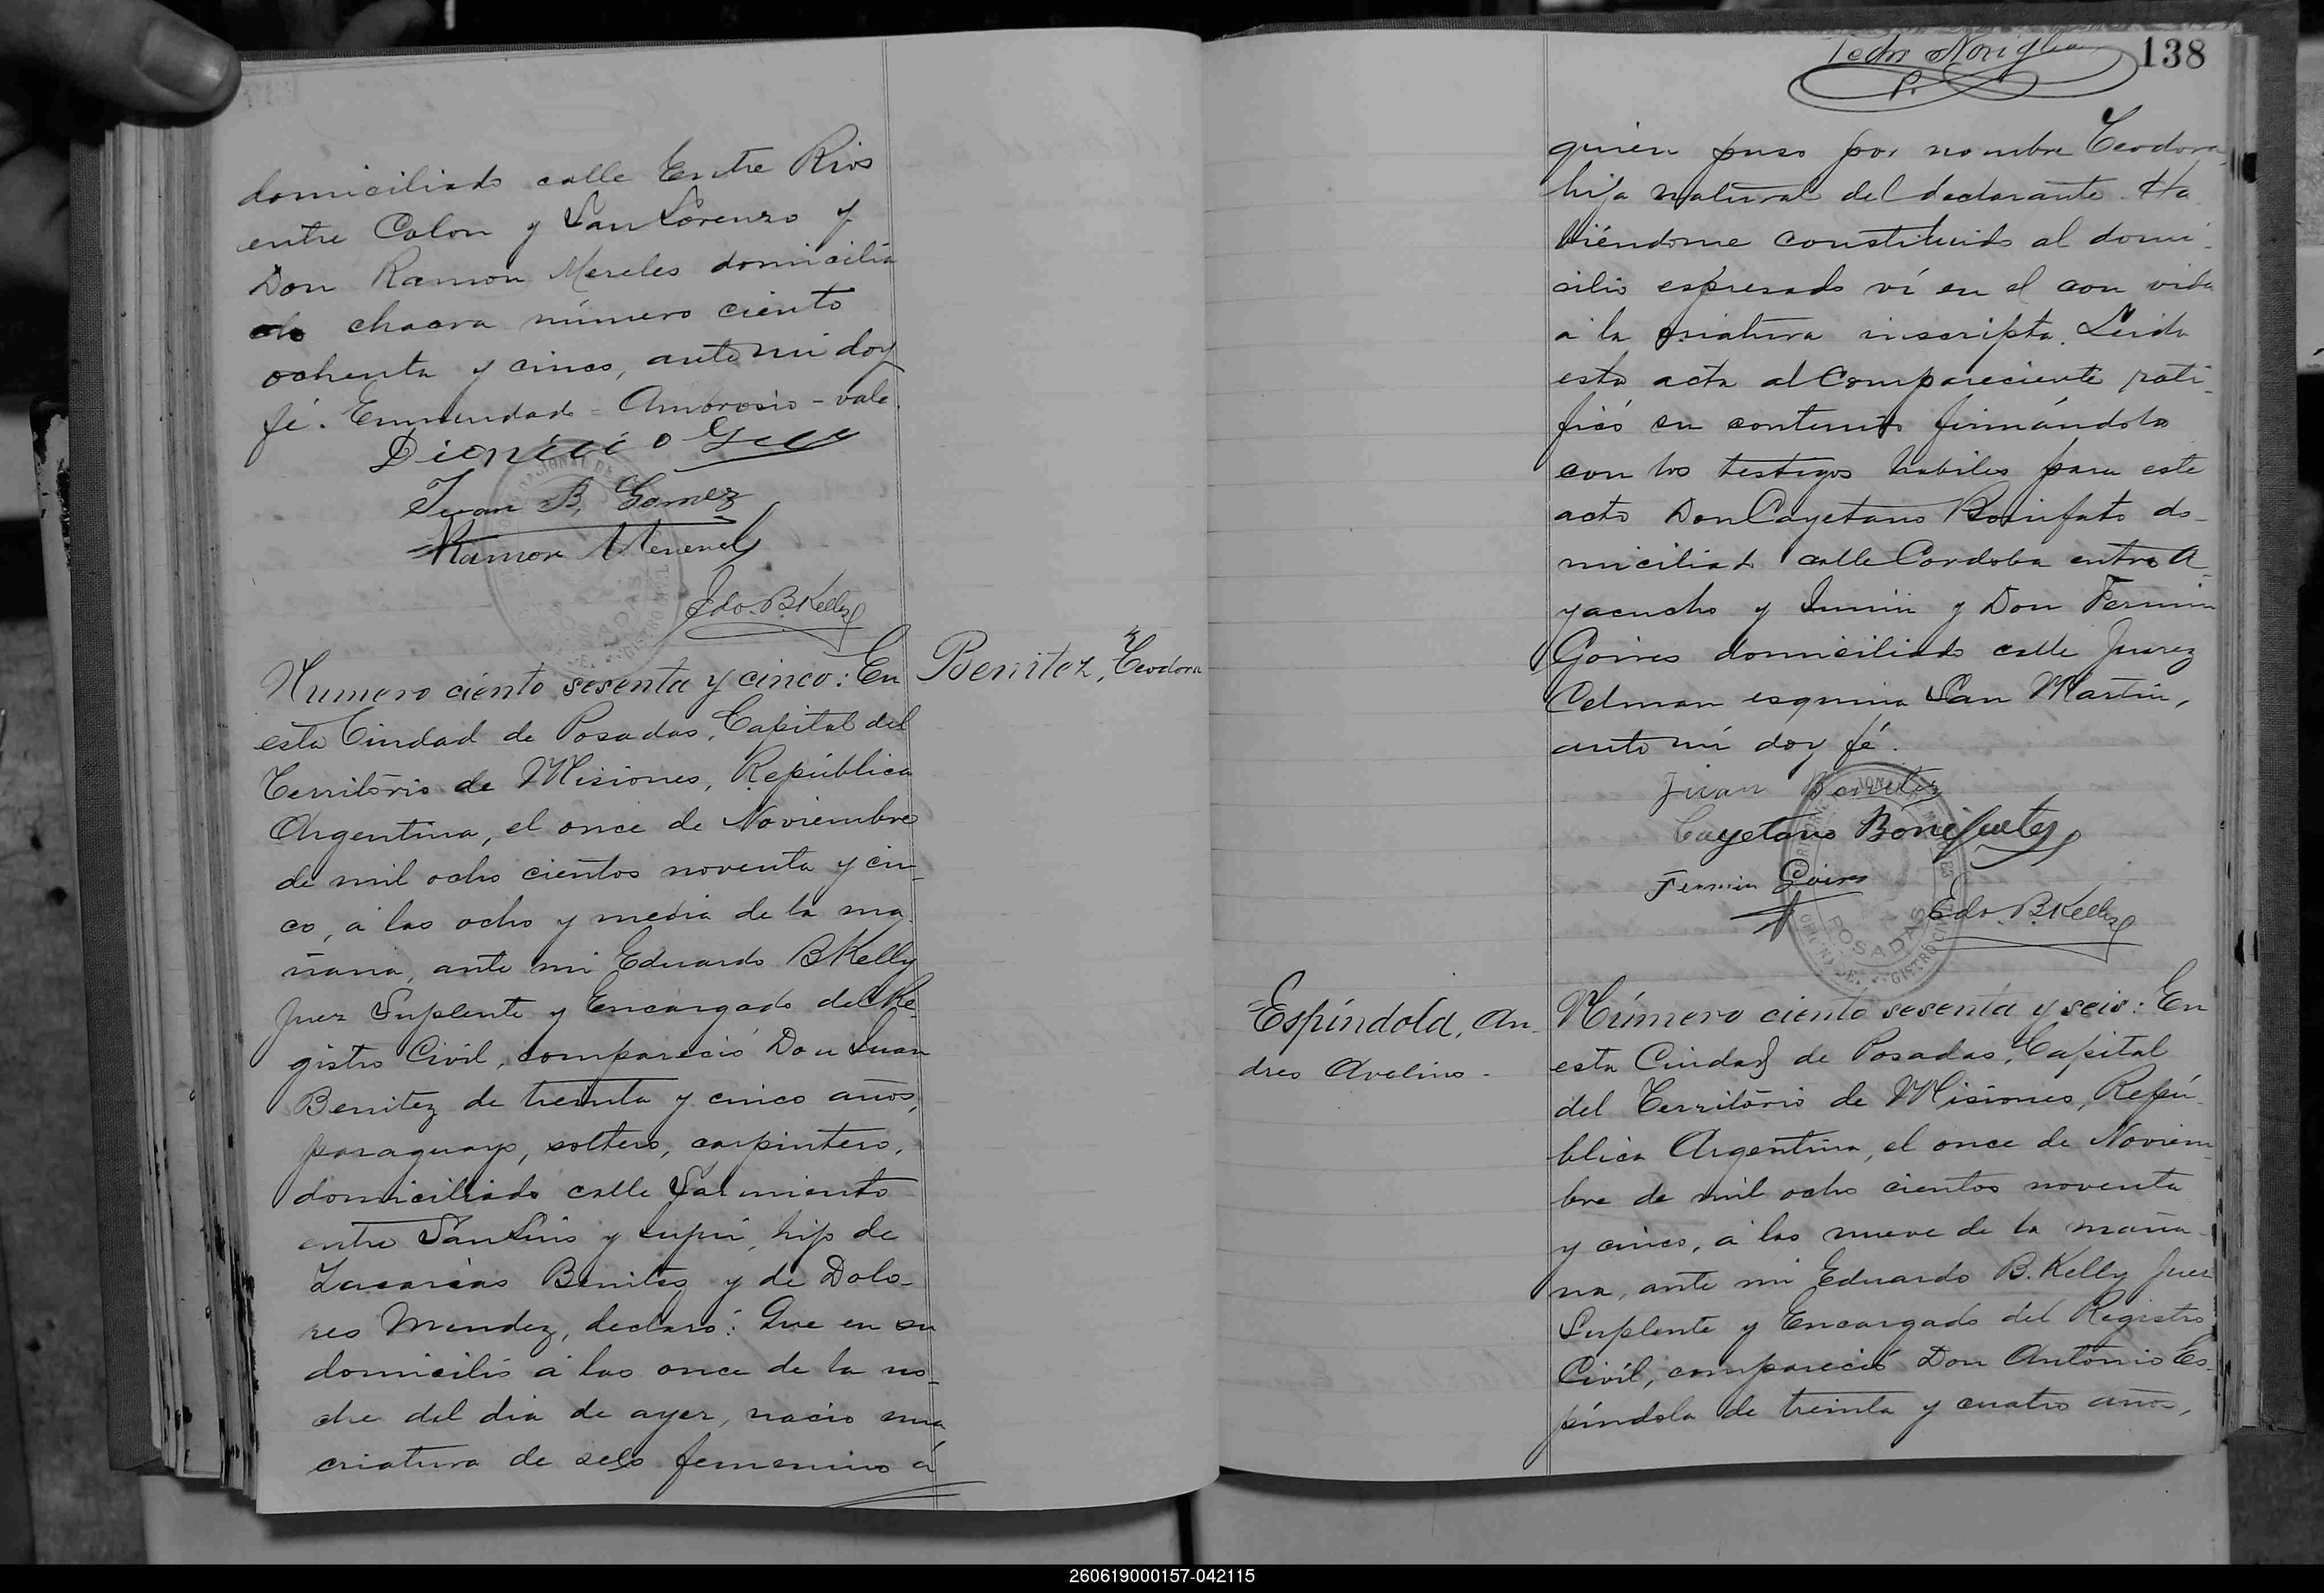 domiciliado calle Entre Rios
entre Colon y San Lorenzo y
Don Ramon Mereles domicilia
do chacra número ciento
ochenta y cinco, ante mi doy
fé. Enmendado = Ambrosio - vale
Dionicio
Juan B, Gomez
Ramon
Edo. B Kelly
Numero ciento sesenta y cinco: En
Benitez, Teodora
esta Ciudad de Posadas, Capital del
Territorio de Misiones, República
Argentina, el once de Noviembre
de mil ocho cientos noventa y cin-
co, á las ocho y media de la ma
ñana, ante mi Eduardo B Kelly
Juez Suplente y Encargado del Re-
gistro Civil, compareció Don Juan
Benitez de treinta y cinco años,
paraguayo, soltero, carpintero,
domiciliado calle Sarmiento
entre San Luis y hijo de
Zacarias Benitez y de Dolo-
res Mendez, declaró: Que en su
domicilio á las once de la no-
che del dia de ayer, nació una
criatura de seso femenino á
138
quien puso por nombre Teodora,
hija natural del declarante. Ha
biéndome constituido al domi-
cilio espresado ví en el con vida
á la criatura inscripta. Leida
esta acta al Compareciente rati-
ficó su contenido firmándola
con los testigos habiles para este
acto Don Cayetano Bonifato do-
miciliado calle Cordoba entre A
yacucho y Junin y Don Fermin
Goires domiciliado calle Juarez
Celman esquina San Martin,
ante mí doy fé.
Juan Benitez
Cayetano Bonifates
Fermin Goires
Edo. B. Kelly
POSADAS
Espíndola, An-
dres Avelino -
Número ciento sesenta y seis: En
esta Ciudad de Posadas, Capital
del Territorio de Misiones, Repú-
blica Argentina, el once de Noviem
bre de mil ocho cientos noventa
y cinco, á las nueve de la maña-
na, ante mi Eduardo B. Kelly Juez
Suplente y Encargado del Registro
Civil, compareció Don Antonio Es-
píndola de treinta y cuatro años,
260619000157-042115